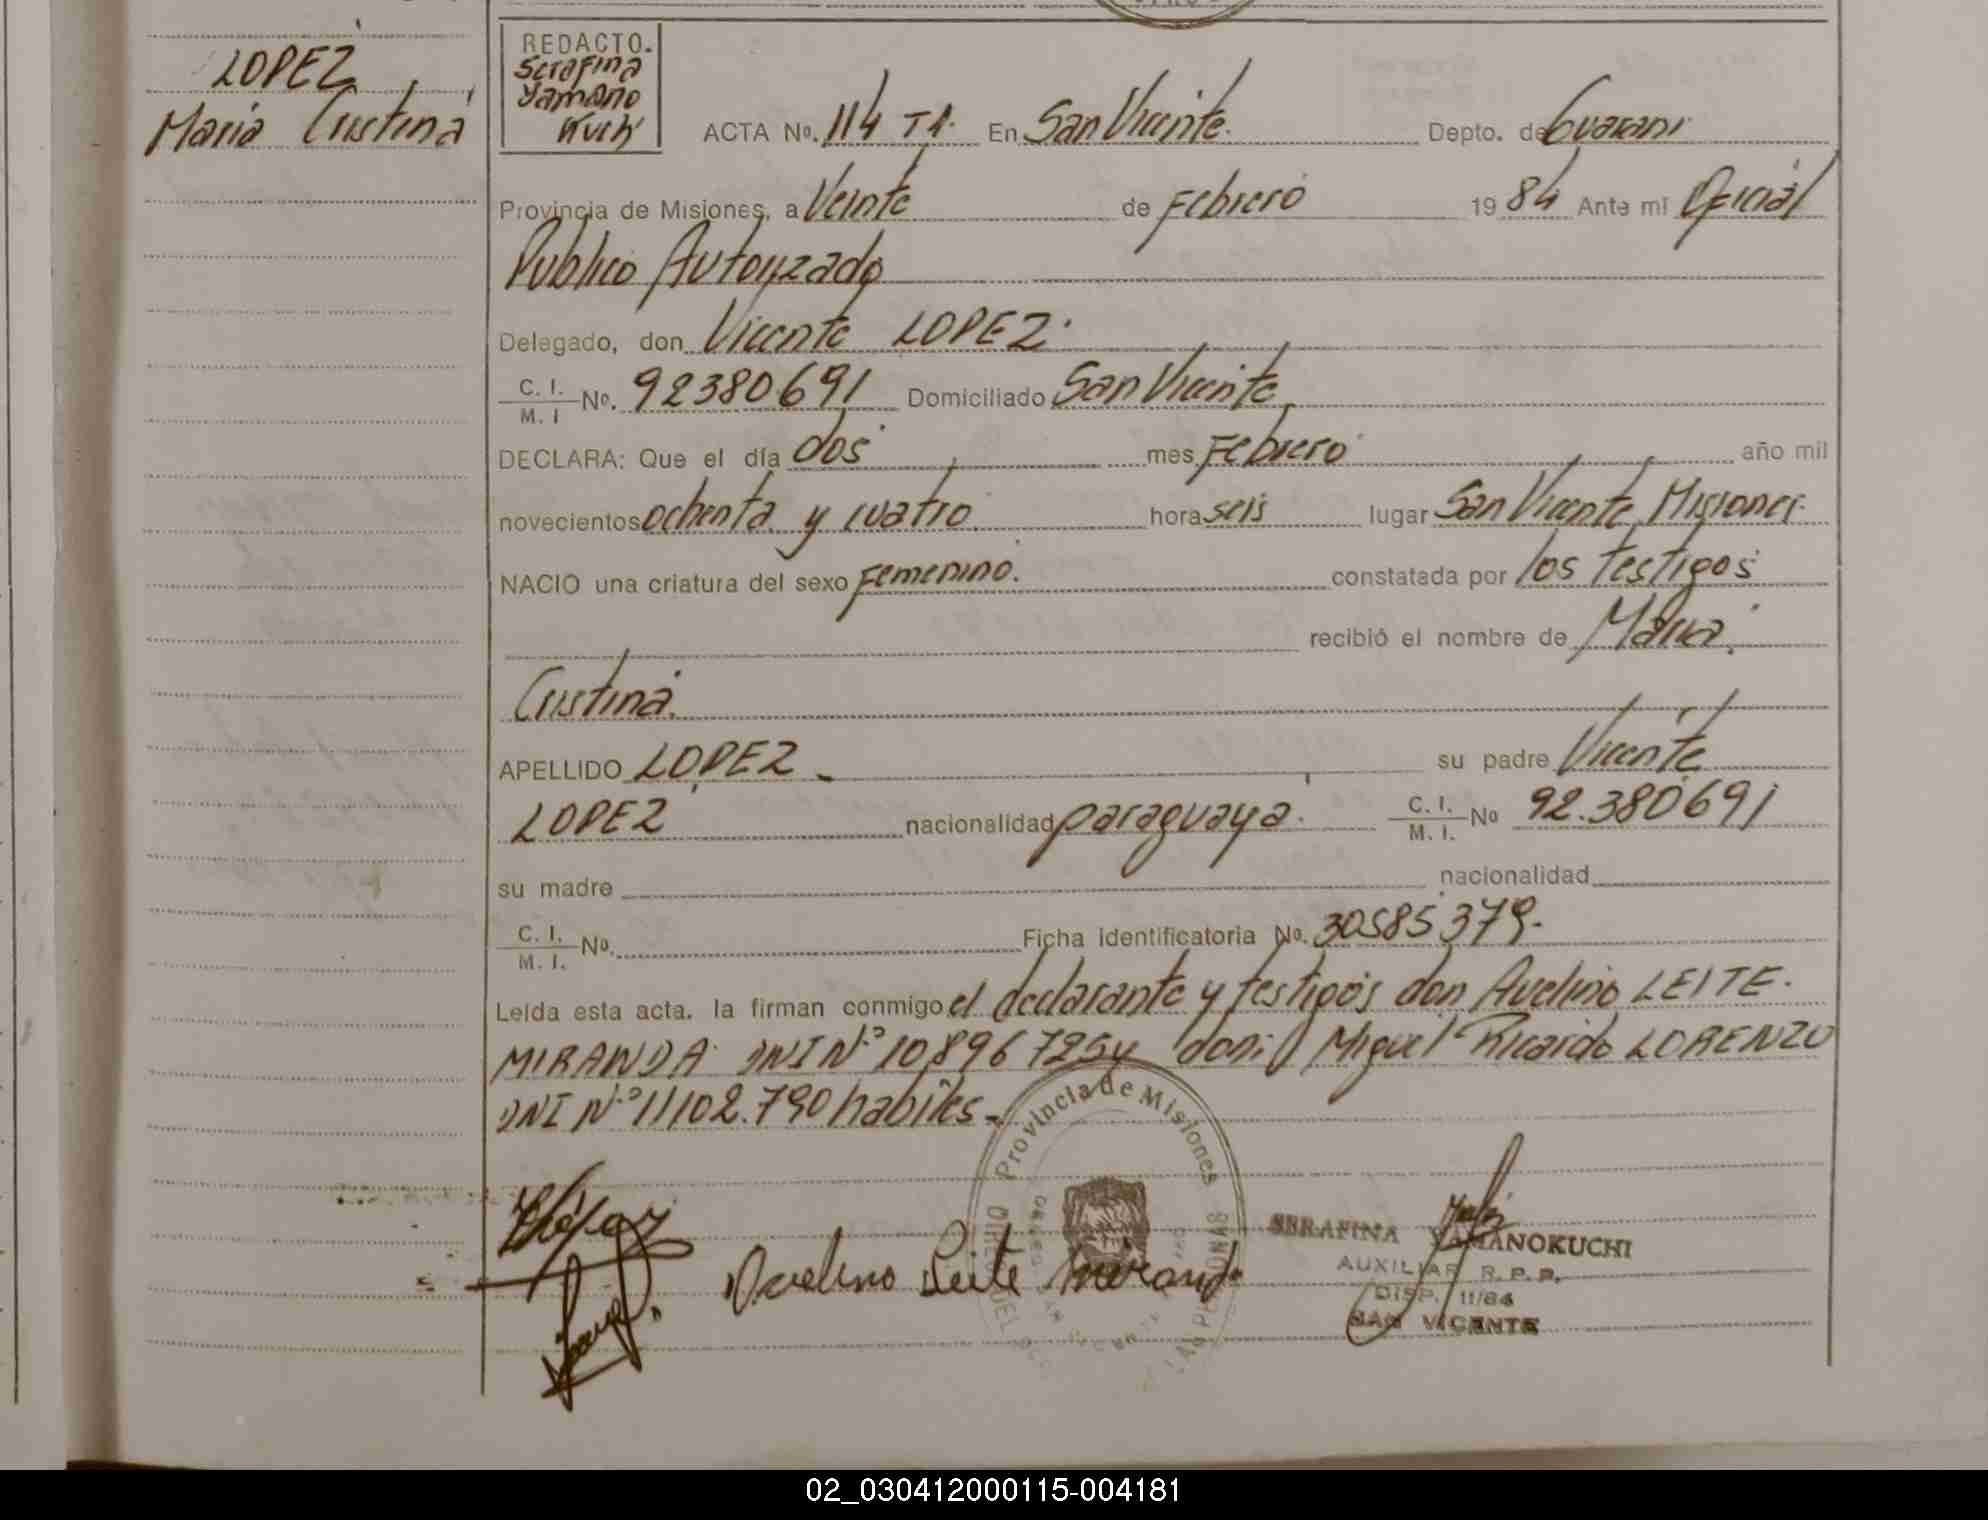 LOPEZ
Maria Cristina
REDACTO.
Serafina
Yamano
Kuchi
ACTA No. 114 T1. En San Vicente. Depto. de Guarani
Provincia de Misiones, a Veinte de Febrero 1984 Ante mi Oficial
Publico Autorizado
Delegado, don Vicente LOPEZ.
C. I. / M. I No. 92380691 Domiciliado San Vicente
DECLARA: Que el día dos mes Febrero año mil
novecientos ochenta y cuatro hora seis lugar San Vicente Misiones.
NACIO una criatura del sexo Femenino. constatada por los testigos
recibió el nombre de Maria
Cristina.
APELLIDO LOPEZ su padre Vicente
LOPEZ nacionalidad paraguaya. C. I. / M. I. No 92.380691
su madre nacionalidad
C. I. / M. I. No. Ficha identificatoria No. 30585379.
Leída esta acta, la firman conmigo el declarante y testigos don Avelino LEITE.
MIRANDA DNI Nº 10896725 y don Miguel Ricardo LORENZO
DNI Nº 11102.790 habiles.
Provincia de Misiones
Avelino Leite Miranda
SERAFINA YAMANOKUCHI
AUXILIAR R. P. P.
DISP. 11/84
SAN VICENTE
02_030412000115-004181